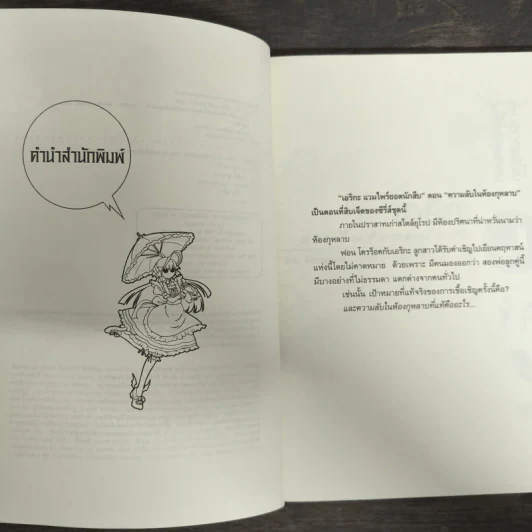 คำนำสำนักพิมพ์
"เอริกะ แวมไพร์ยอดนักสืบ" ตอน "ความลับในห้องกุหลาบ"
เป็นตอนที่สิบเจ็ดของซีรีส์ชุดนี้
ภายในปราสาทเก่าสไตล์ยุโรป มีห้องปริศนาที่น่าหวั่นนามว่า
ห้องกุหลาบ
ฟอน โครร็อคกับเอริกะ ลูกสาวได้รับคำเชิญไปเยือนคฤหาสน์
แห่งนี้โดยไม่คาดหมาย ด้วยเพราะ มีคนมองออกว่า สองพ่อลูกคู่นี้
มีบางอย่างที่ไม่ธรรมดา แตกต่างจากคนทั่วไป
เช่นนั้น เป้าหมายที่แท้จริงของการเชื้อเชิญครั้งนี้คือ?
และความลับในห้องกุหลาบที่แท้คืออะไร...